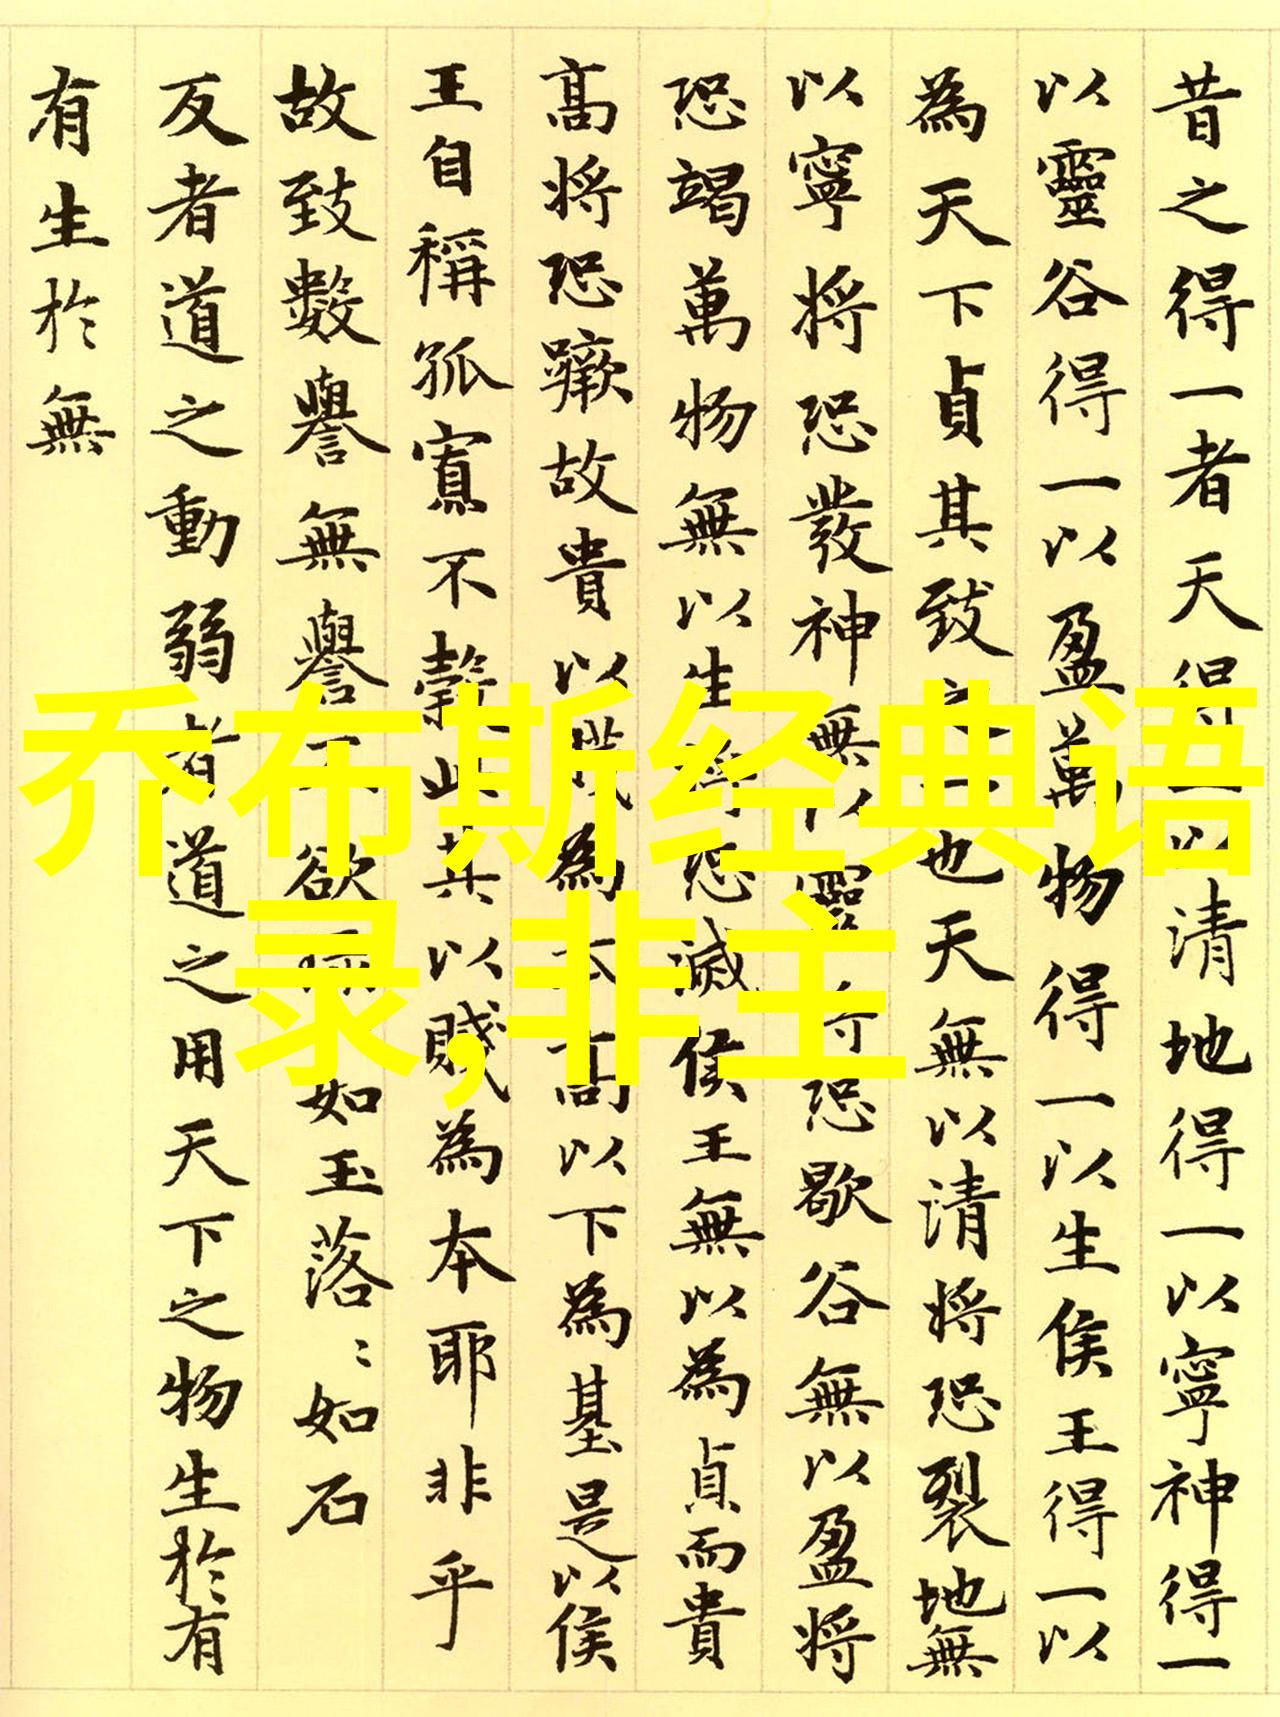 昔之得一者天得一以清地得一以寧神得一
以靈谷得一以盈萬物得一以生侯王得一以
為天下貞其致之一也天無以清將恐裂地無
以寧將恐發神無以靈將恐歇谷無以盈將
恐竭萬物無以生將恐滅侯王無以為貞而貴
高將恐蹶故貴以賤為本高以下為基是以侯
王自稱孤寡不穀此其以賤為本耶非乎
故致數譽無譽不欲如玉落〻如石
反者道之動弱者道之用天下之物生於有
有生於無
乔布斯经典语
录,非主